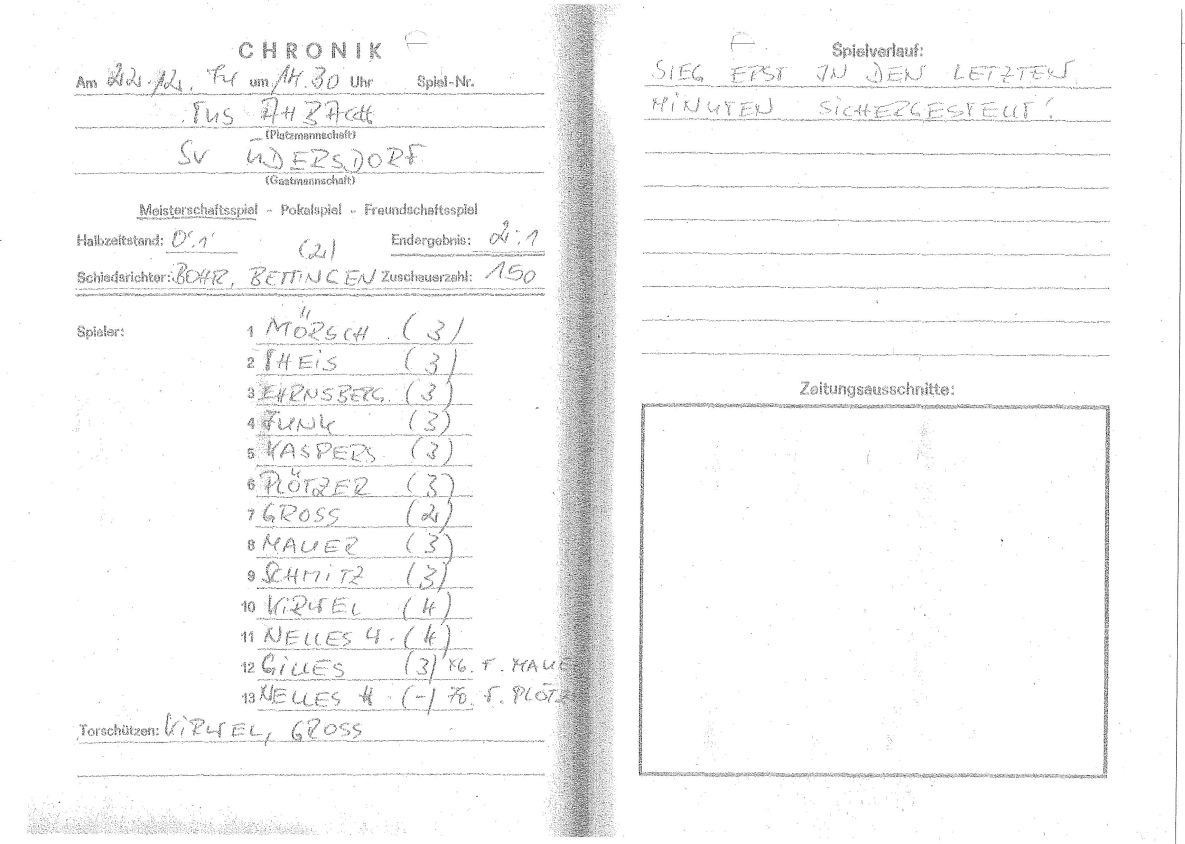 CHRONIK
Am 22.12. 74 um 14.30 Uhr Spiel-Nr.
TUS AHBACH
(Platzmannschaft)
SV ÜDERSDORF
(Gastmannschaft)
Meisterschaftsspiel - Pokalspiel - Freundschaftsspiel
Halbzeitstand: 0:1 (2) Endergebnis: 2:1
Schiedsrichter: BOHR, BETTINGEN Zuschauerzahl: 150
Spieler: 1 MÖRSCH (3)
2 THEIS (3)
3 EHRNSBERG. (3)
4 FUNK (3)
5 KASPERS (3)
6 PLÖTZER (3)
7 GROSS (2)
8 MAUER (3)
9 SCHMITZ (3)
10 VIRWEL (4)
11 NELLES (4)
12 GILLES (3) F. MAUE
13 NELLES (-) 70. F. PLÖTZ
Torschützen: VIRWEL, GROSS
Spielverlauf:
SIEG ERST IN DEN LETZTEN
MINUTEN SICHERGESTELLT!
Zeitungsausschnitte: